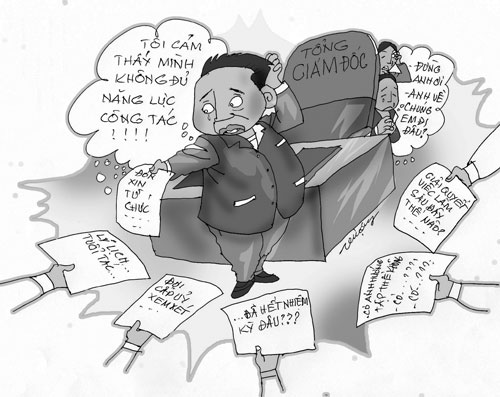 TÔI CẢM
THẤY MÌNH
KHÔNG ĐỦ
NĂNG LỰC
CÔNG TÁC
!!!!
TỔNG
GIÁM ĐỐC
- ĐỪNG
ANH ƠI
- ANH VỀ
CHÚNG
EM ĐI
ĐÂU?
ĐƠN
XIN
TỪ
CHỨC
GIẢI QUYẾT
VIỆC LÀM
SAU ĐÂY
THẾ NÀO?
LÝ LỊCH
TUỔI TÁC...
ĐỢI
CẤP ỦY
XEM XÉT
...ĐÃ HẾT NHIỆM
KỲ ĐÂU???
- CÓ ẢNH HƯỞNG
TẬP THỂ KHÔNG
- CÓ...???
- CÓ...??